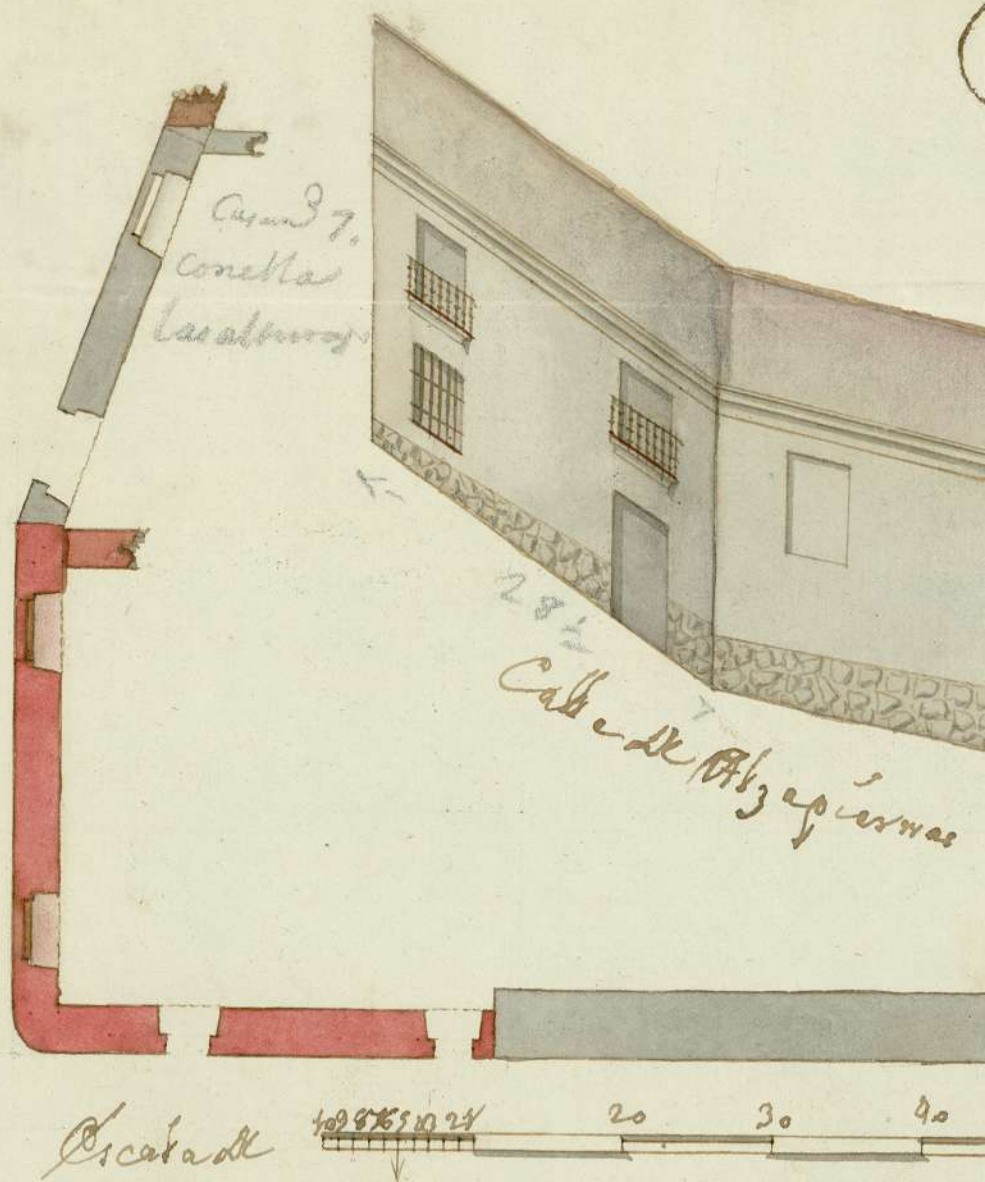 Casa nº 7.
con esta
las alturas
28½
Calle de Alzapiernas
Escala de
10 9 8 7 6 5 4 3 2 1 20 30 40